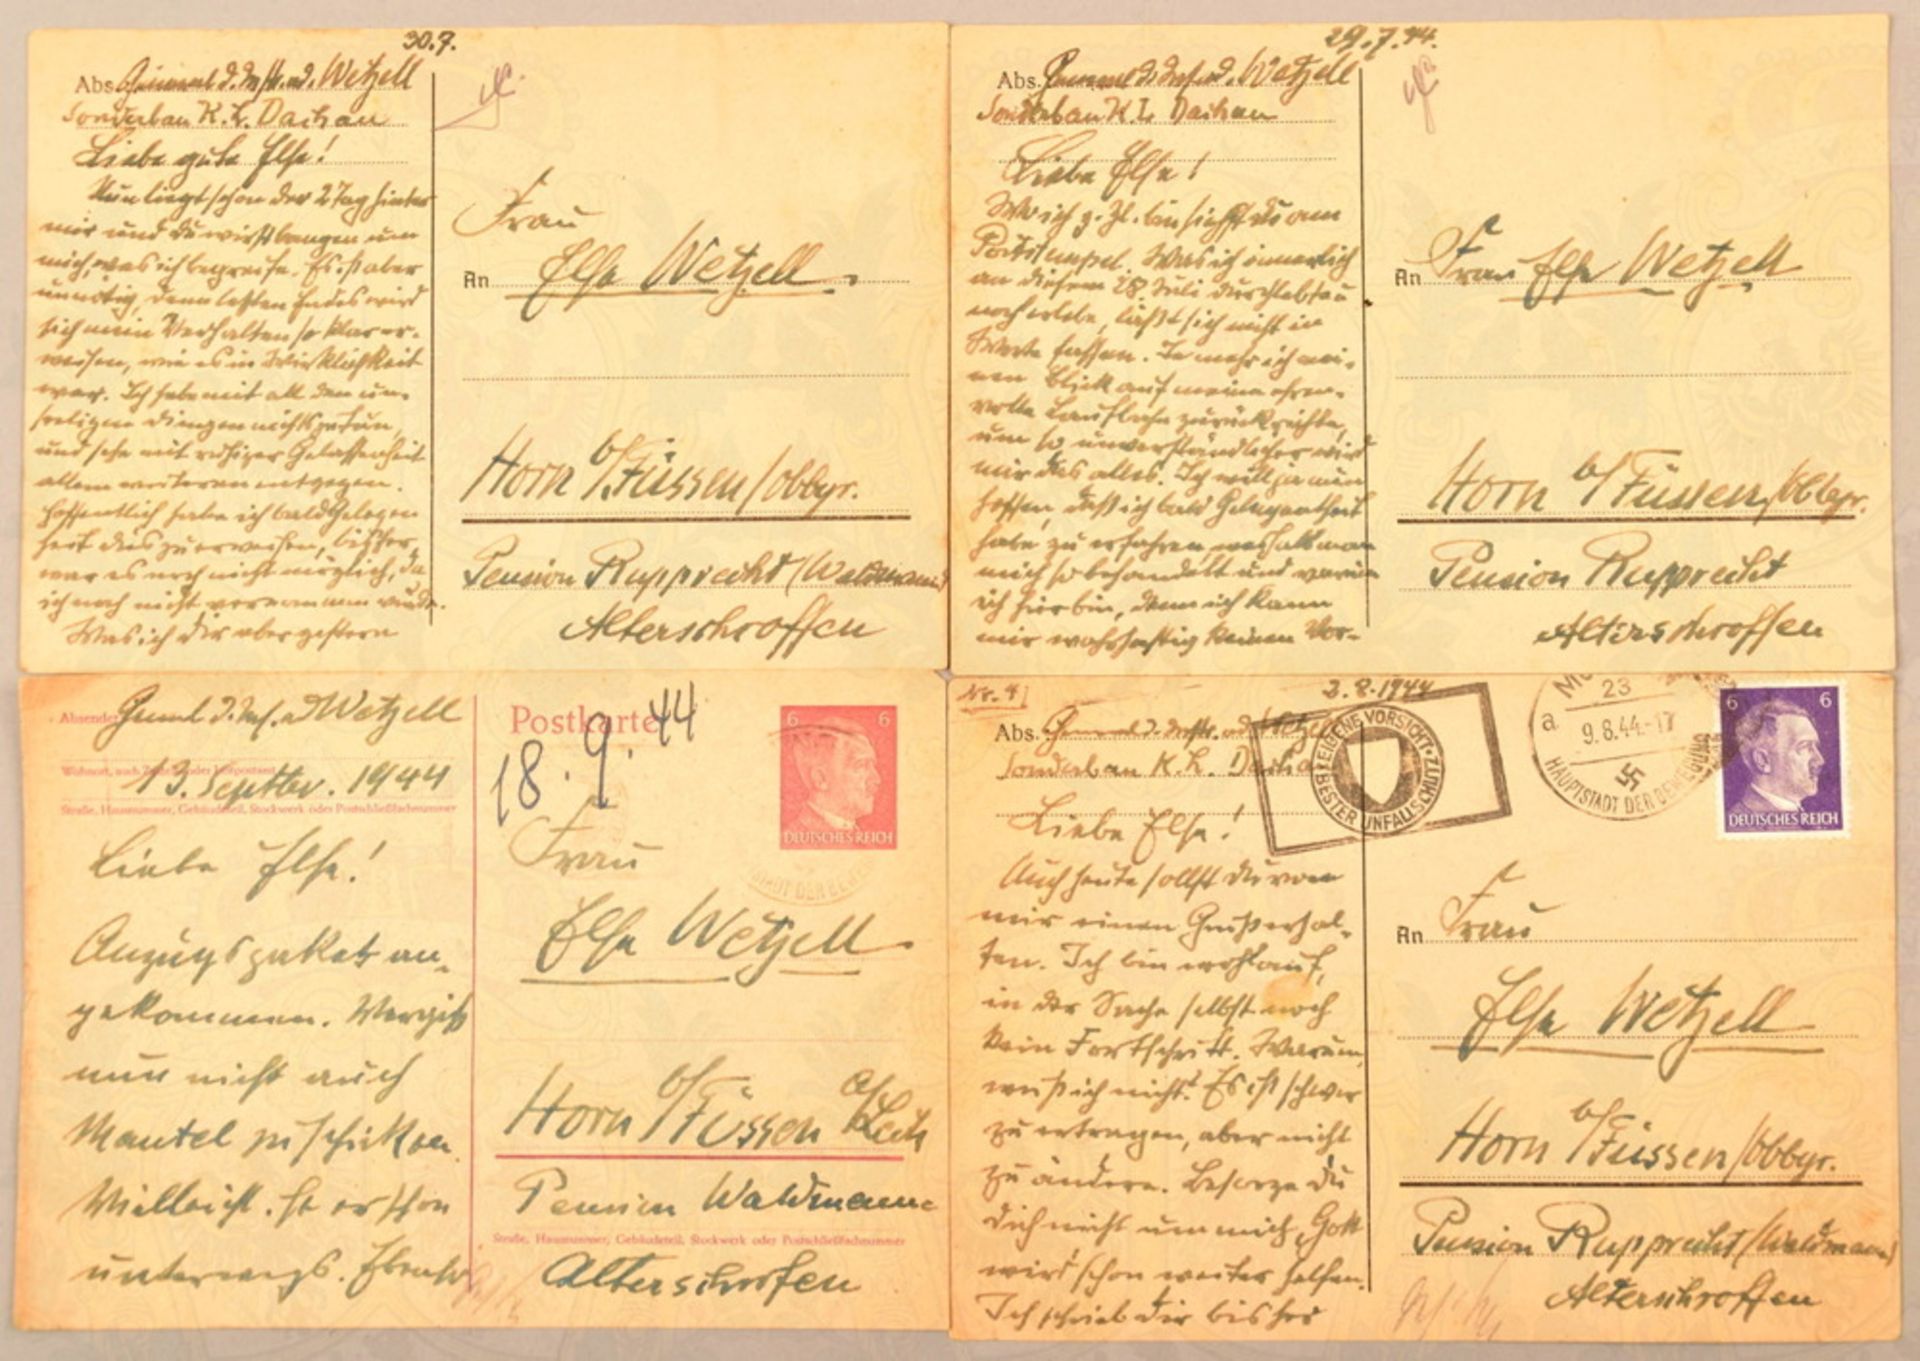 30.7.
Abs. General d. Inf. a.d. Wetzell
Sonderbau K.L. Dachau
Liebe gute Else!
Nun liegt schon der 2 Tag hinter
mir und du wirst bangen um
mich, was ich begreife. Es ist aber
unnötig, denn letzten Endes wird
sich mein Verhalten so klar er-
weisen, wie es in Wirklichkeit
war. Ich habe mit all den un-
seeligen Dingen nichts getun,
und sehe mit ruhiger Gelassenheit
allem weiteren entgegen.
Hoffentlich habe ich bald Gelegen
heit dies zu erweisen, bisher
war es noch nicht möglich, da
ich noch nicht vernommen wurde.
Was ich Dir aber gestern
Frau
An Else Wetzell.
Horn b/Füssen/obbyr.
Pension Rupprecht/(Waldmann)
Alterschroffen
29.7.44.
Abs. General d. Inf. a.d. Wetzell
Sonderbau K.L. Dachau
Liebe Else!
Wo ich z. Zt. bin siehst du am
Poststempel. Was ich innerlich
an diesem 28. Juli durchlebte u
noch erlebe, läßt sich nicht in
Worte fassen. Je mehr ich mei-
nen Blick auf meine ehren-
volle Laufbahn zurückrichte,
um so unverständlicher wird
mir das alles. Ich will ja nun
hoffen, daß ich bald Gelegentheit
habe zu erfahren weshalb man
mich so behandelt und warum
ich hier bin, denn ich kann
mir wahrhaftig keinen Vor-
An Frau Else Wetzell
Horn b/Füssen/obbyr.
Pension Rupprecht
Alterschroffen
Absender: General d. Inf. a.d. Wetzell
Wohnort, auch Zustell- oder Leitpostamt
13. Septbr. 1944
Straße, Hausnummer, Gebäudeteil, Stockwerk oder Postschließfachnummer
Liebe Else!
Anzugspaket an-
gekommen. Vergiß
nun nicht auch
Mantel zu schicken.
Vielleicht ist er schon
unterwegs. Ebenso
Postkarte
18.9.44
6 6
DEUTSCHES REICH
Frau
Else Wetzell.
Horn b/Füssen a/Lech
Pension Waldmann
Straße, Hausnummer, Gebäudeteil, Stockwerk oder Postschließfachnummer
Alterschrofen
Nr. 4)
2.8.1944
Abs. General d. Inftr. a.d. Wetzell
Sonderbau K.L. Dachau
EIGENE VORSICHT
BESTER UNFALLSCHUTZ
23
a 9.8.44.-17
HAUPTSTADT DER BEWEGUNG
6 6
DEUTSCHES REICH
Liebe Else!
Auch heute sollst du von
mir einen Gruß erhal-
ten. Ich bin wohlauf,
in der Sache selbst noch
kein Fortschritt. Warum,
weiß ich nicht? Es ist schwer
zu ertragen, aber nicht
zu ändern. Besorge Du
Dich nicht um mich, Gott
wird schon weiter helfen.
Ich schrieb Dir bisher
An Frau
Else Wetzell
Horn b/Füssen/obbyr.
Pension Rupprecht/(Waldmann)
Alterschroffen